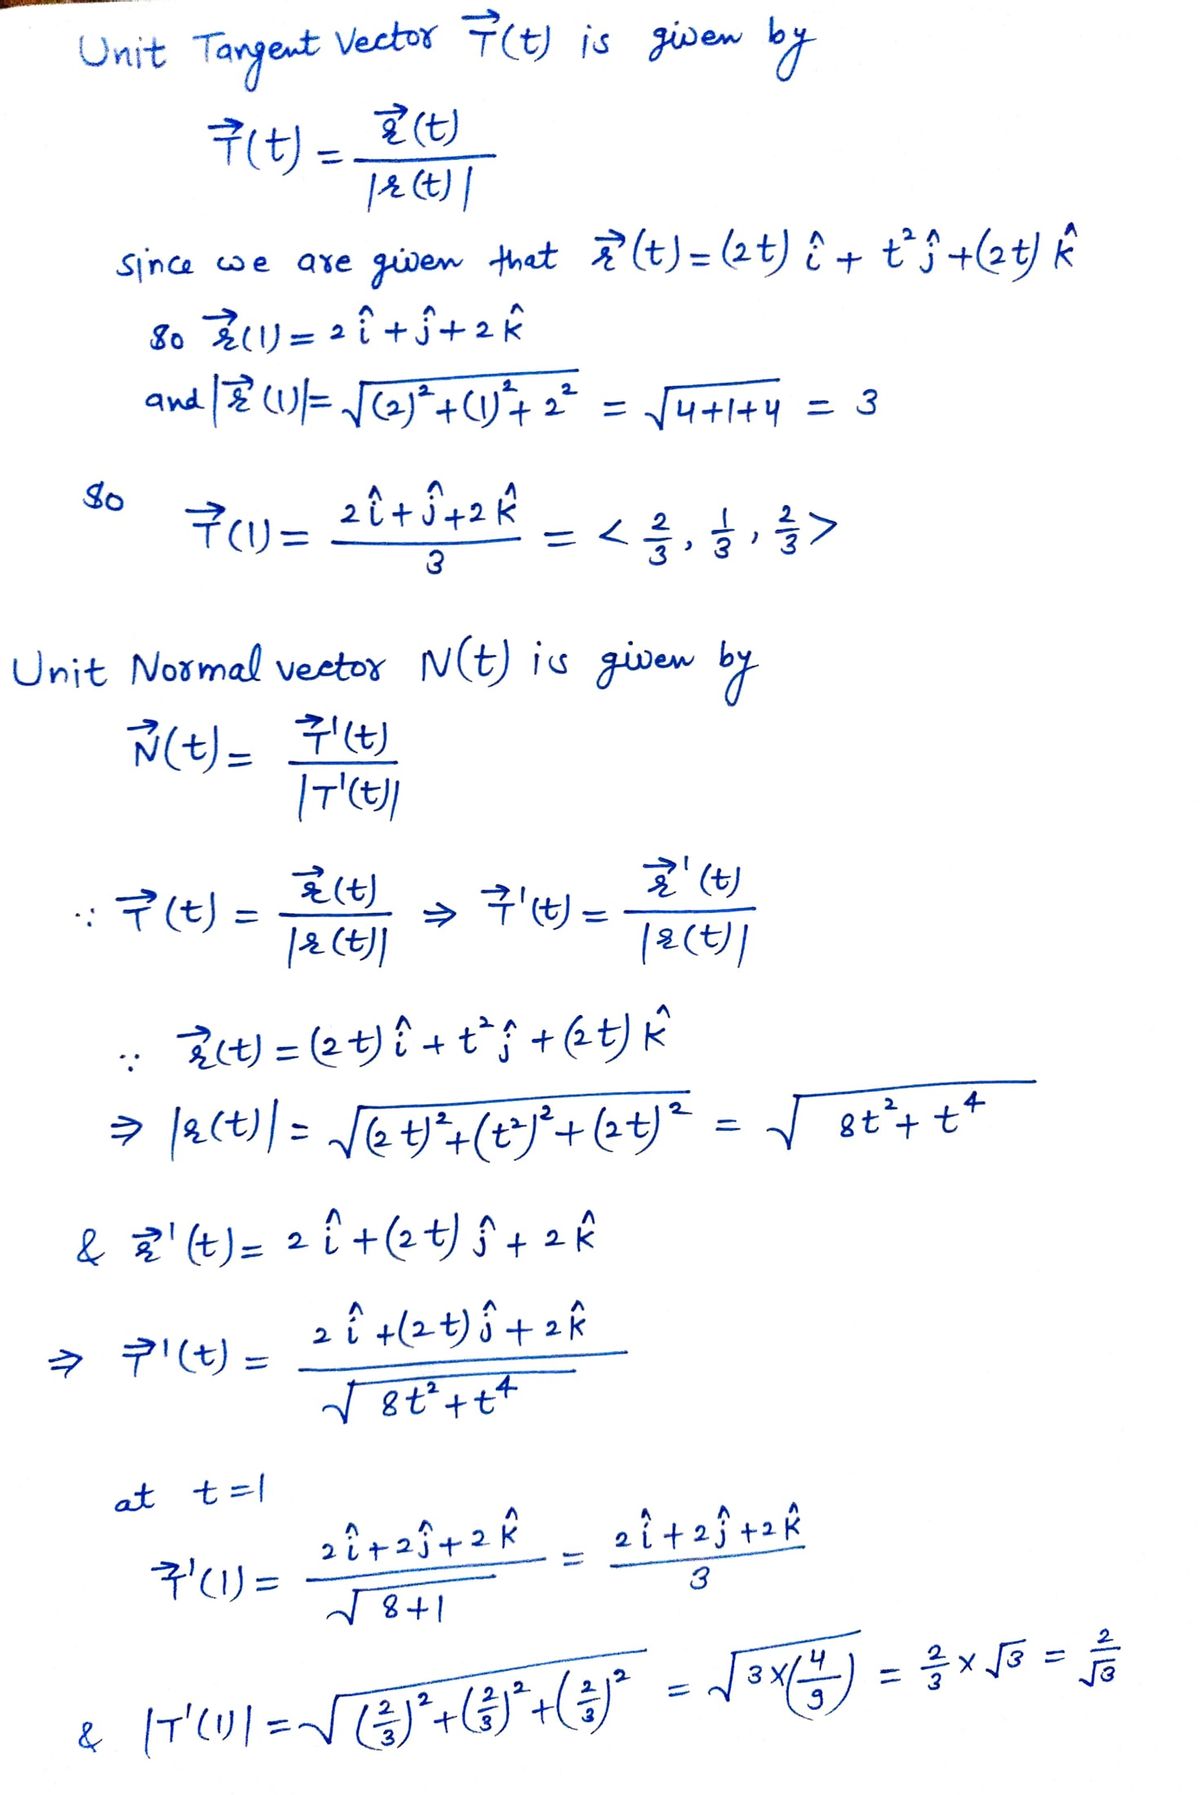 Unit Tangent Vector T⃗(t) is given by
T⃗(t) = r⃗(t) / |r(t)|
since we are given that r⃗(t) = (2t) î + t² ĵ + (2t) k̂
so r⃗(1) = 2î + ĵ + 2k̂
and |r⃗(1)| = √((2)² + (1)² + 2²) = √(4+1+4) = 3
so T⃗(1) = (2î + ĵ + 2k̂) / 3 = < 2/3, 1/3, 2/3 >
Unit Normal vector N(t) is given by
N⃗(t) = T⃗'(t) / |T'(t)|
∵ T⃗(t) = r⃗(t) / |r(t)| ⇒ T⃗'(t) = r⃗'(t) / |r(t)|
∵ r⃗(t) = (2t) î + t² ĵ + (2t) k̂
⇒ |r(t)| = √((2t)² + (t²)² + (2t)²) = √(8t² + t⁴)
& r⃗'(t) = 2î + (2t) ĵ + 2k̂
⇒ T⃗'(t) = (2î + (2t) ĵ + 2k̂) / √(8t² + t⁴)
at t = 1
T⃗'(1) = (2î + 2ĵ + 2k̂) / √(8+1) = (2î + 2ĵ + 2k̂) / 3
& |T'(1)| = √((2/3)² + (2/3)² + (2/3)²) = √(3×(4/9)) = 2/3 × √3 = 2/√3